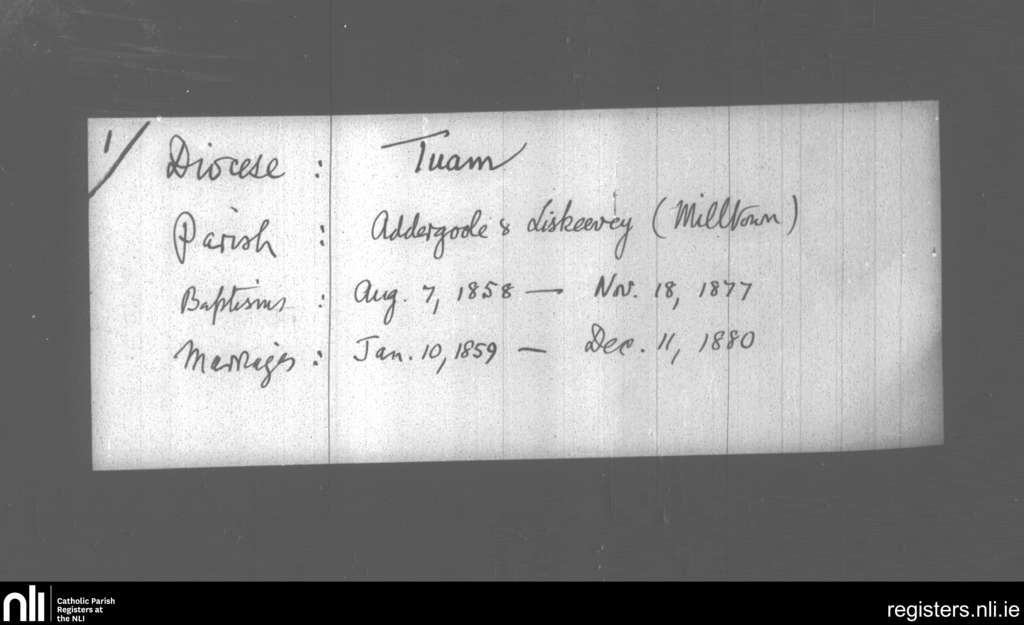 1/
Diocese : Tuam
Parish : Addergoole & Liskeevey (Milltown)
Baptisms : Aug. 7, 1858 — Nov. 18, 1877
Marriages : Jan. 10, 1859 — Dec. 11, 1880
nli
Catholic Parish
Registers at
the NLI
registers.nli.ie